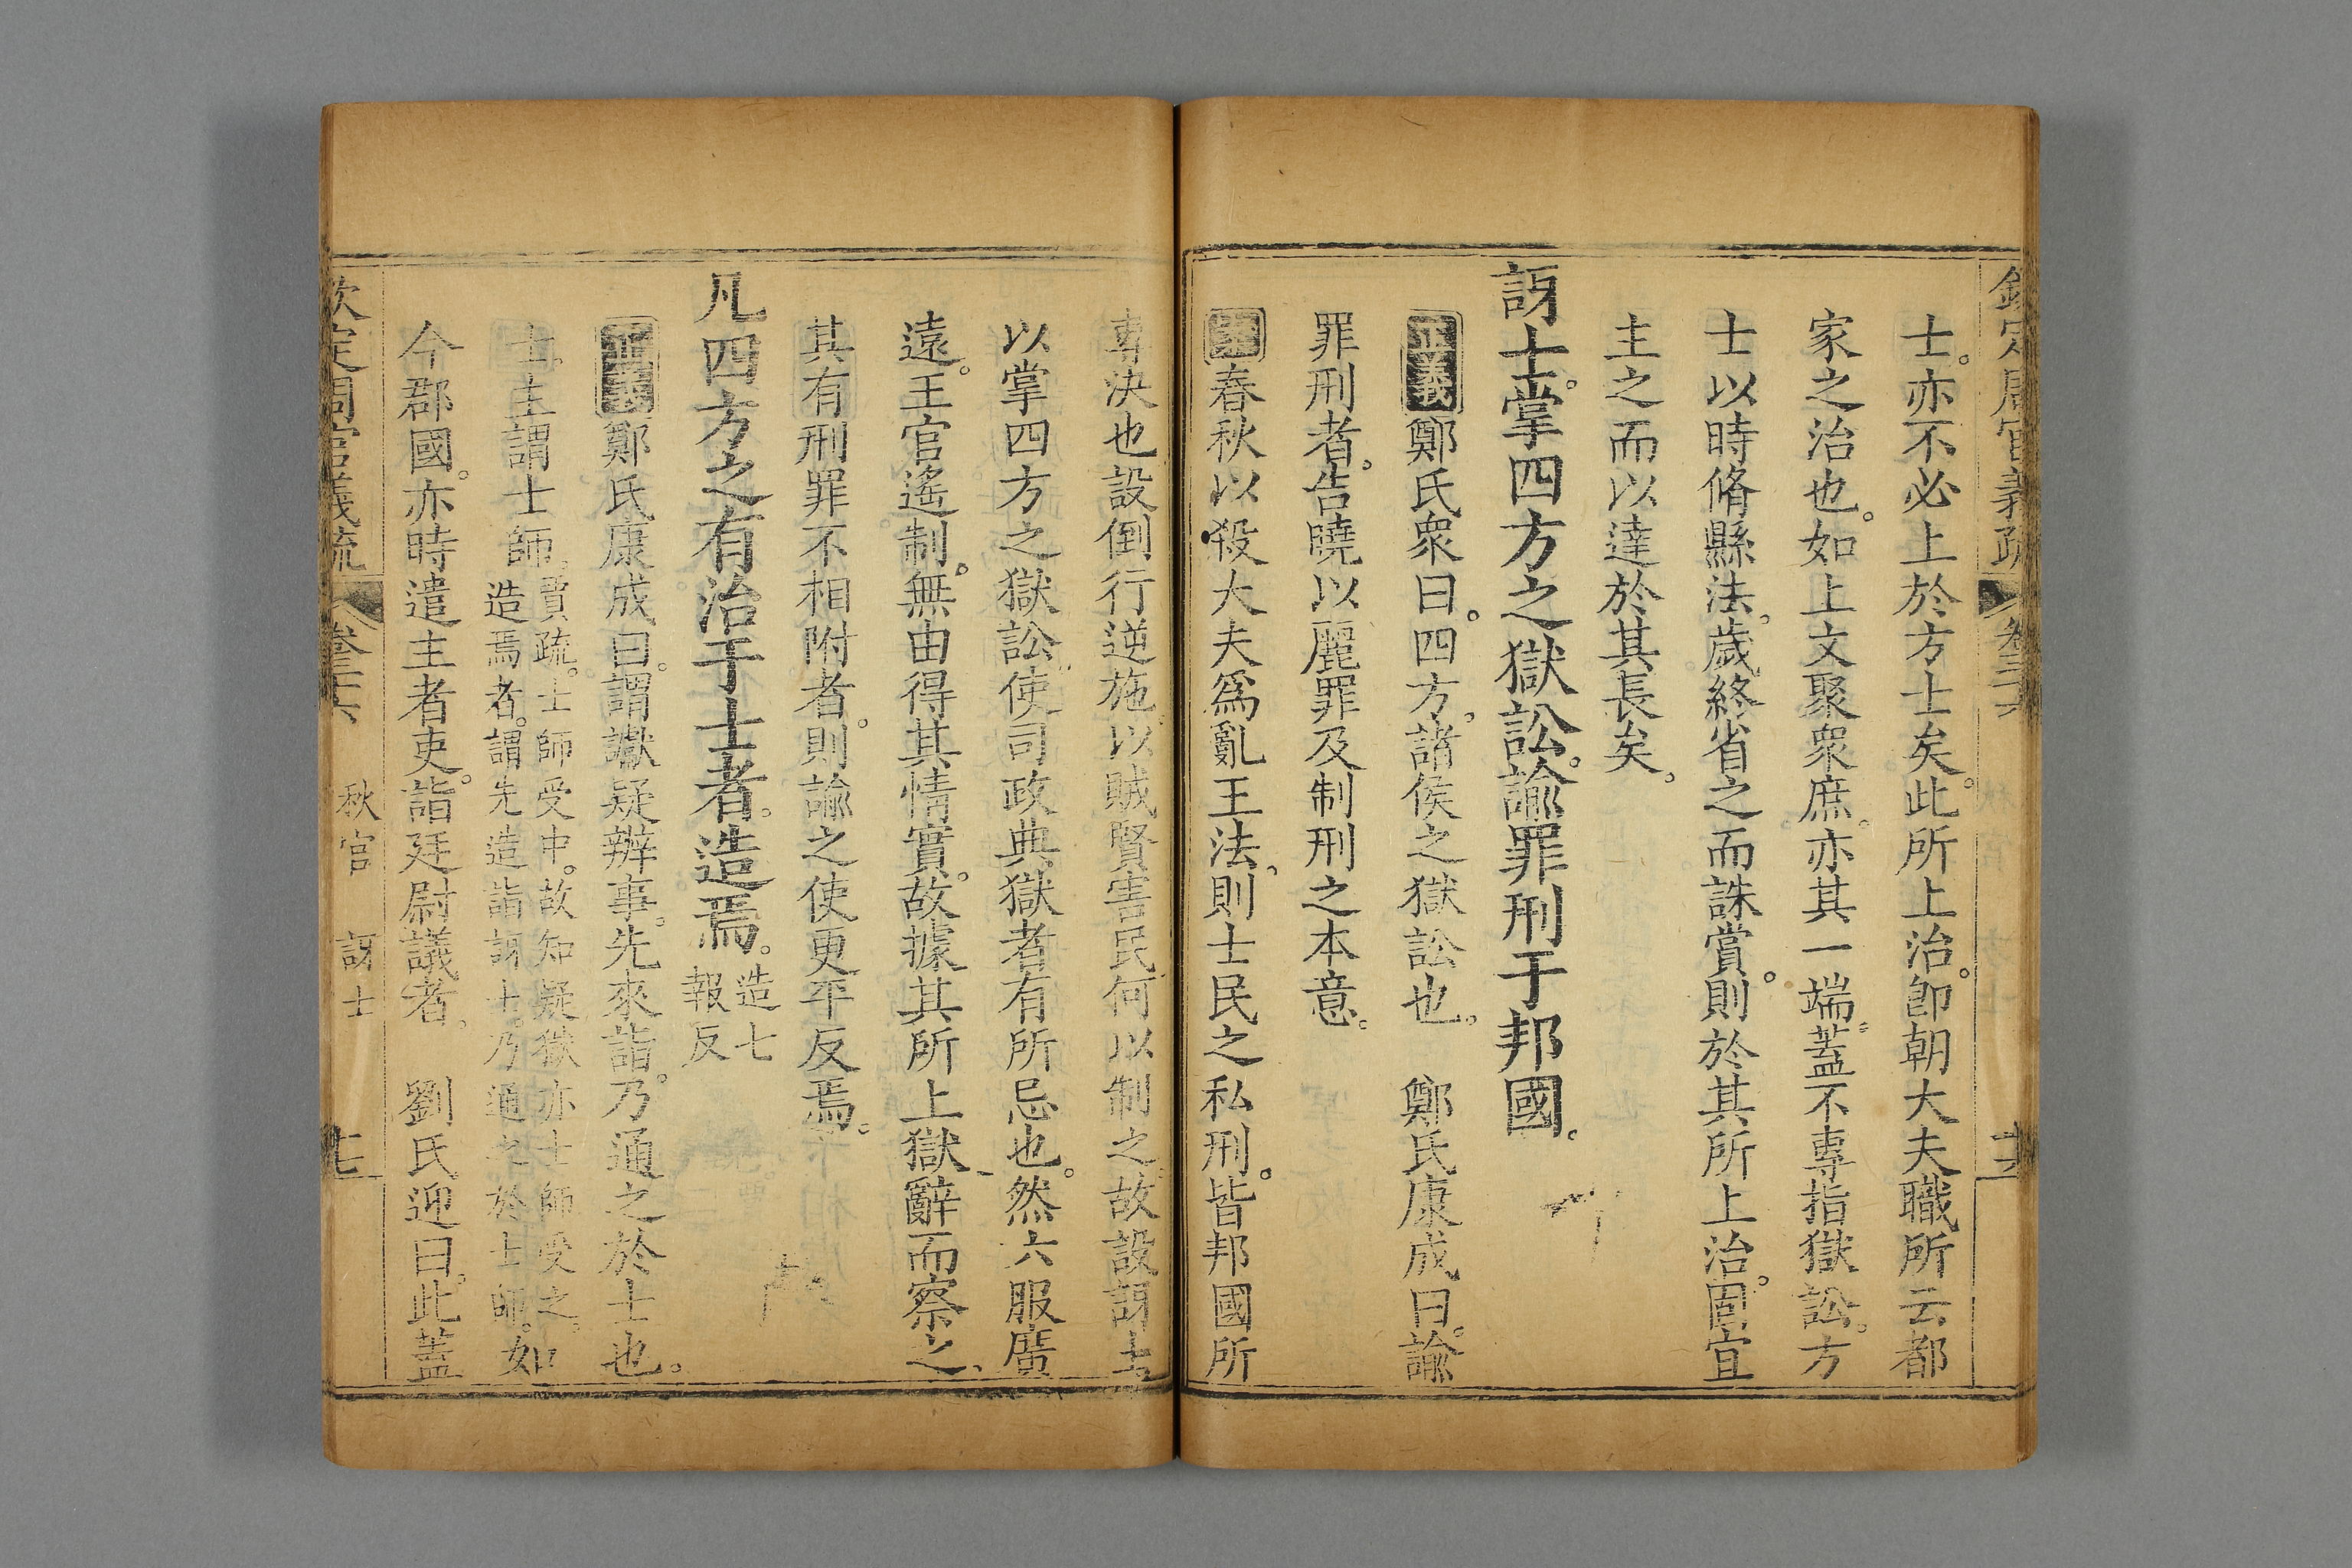 欽定周官義疏 卷三十六
士。亦不必上於方士矣。此所上治。卽朝大夫職所云都
家之治也。如上文聚衆庶。亦其一端。蓋不專指獄訟。方
士以時脩縣法。歲終省之而誅賞。則於其所上治。固宜
主之而以達於其長矣。
訝士。掌四方之獄訟。諭罪刑于邦國。
正義鄭氏衆曰。四方。諸侯之獄訟也。 鄭氏康成曰。諭
罪刑者。告曉以麗罪及制刑之本意。
案春秋以殺大夫爲亂王法。則士民之私刑。皆邦國所
專決也設倒行逆施。以賊賢害民。何以制之。故設訝士
以掌四方之獄訟。使司政典獄者有所忌也。然六服廣
遠。王官遙制。無由得其情實。故據其所上獄辭而察之、
其有刑罪不相附者。則諭之使更平反焉。
凡四方之有治于士者。造焉。造七報反
正義鄭氏康成曰。謂讞疑辨事。先來詣。乃通之於士也。
士。主謂士師。賈疏。士師受中。故知疑獄亦士師受之。造焉者。謂先造詣訝士。乃通之於士師。如
今郡國。亦時遣主者吏。詣廷尉議者。 劉氏迎曰。此蓋
欽定周官義疏 卷三十六 秋官 訝士 七